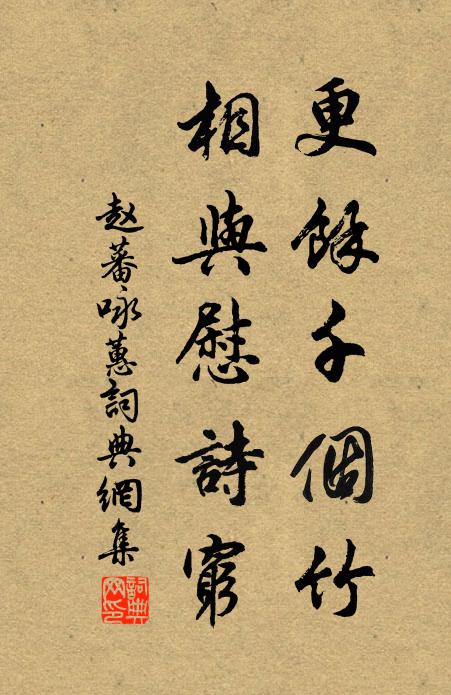 更餘千個竹
相與慰詩窮
赵蕃咏蕙詞典網集
詞典网印